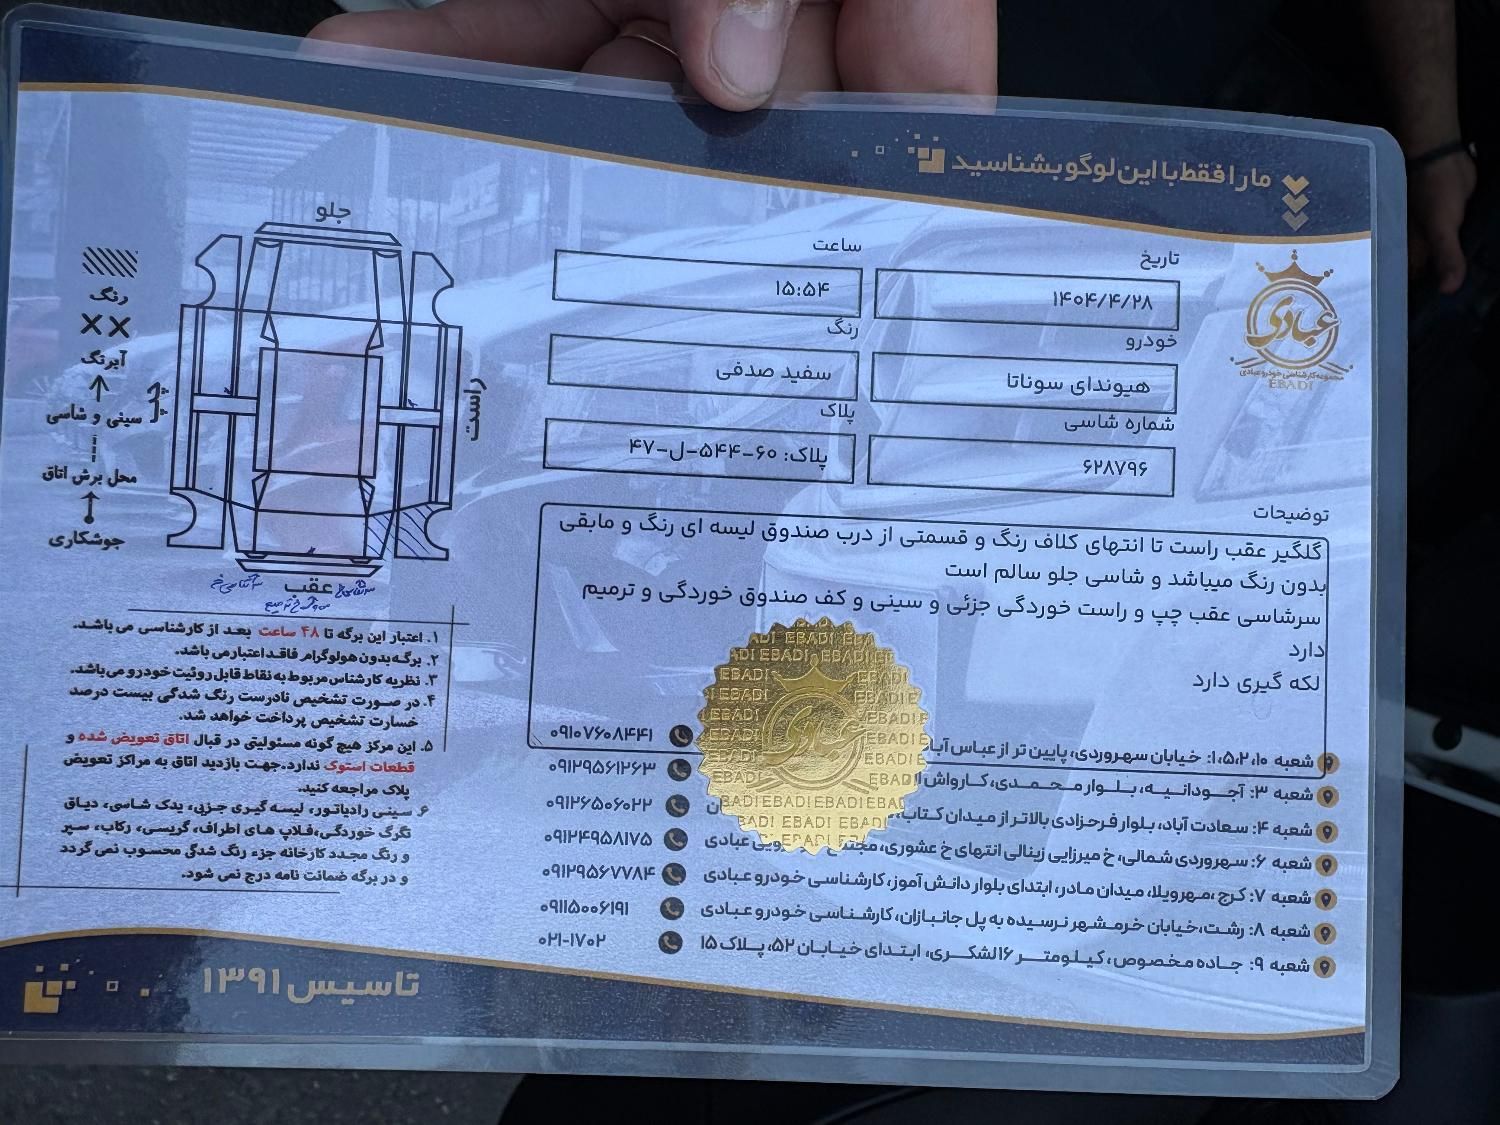 ما را فقط با این لوگو بشناسید
عبادی
مجموعه کارشناسی خودرو عبادی
EBADI
تاریخ
۱۴۰۴/۴/۲۸
ساعت
۱۵:۵۴
خودرو
هیوندای سوناتا
رنگ
سفید صدفی
شماره شاسی
۶۲۸۷۹۶
پلاک
پلاک: ۶۰-۵۴۴-ل-۴۷
توضیحات
گلگیر عقب راست تا انتهای کلاف رنگ و قسمتی از درب صندوق لیسه ای رنگ و مابقی
بدون رنگ میباشد و شاسی جلو سالم است
سرشاسی عقب چپ و راست خوردگی جزئی و سینی و کف صندوق خوردگی و ترمیم
دارد
لکه گیری دارد
شعبه ۱،۵،۲،۱۰: خیابان سهروردی، پایین تر از عباس آباد
۰۹۱۰۷۶۰۸۴۴۱
شعبه ۳: آجودانیه، بلوار محمدی، کارواش
۰۹۱۲۹۵۶۱۲۶۳
شعبه ۴: سعادت آباد، بلوار فرحزادی بالاتر از میدان کتاب،
۰۹۱۲۶۵۰۶۰۲۲
شعبه ۶: سهروردی شمالی، خ میرزایی زینالی انتهای خ عشوری، مجتمع عبادی
۰۹۱۲۴۹۵۸۱۷۵
شعبه ۷: کرج، مهرویلا، میدان مادر، ابتدای بلوار دانش آموز، کارشناسی خودرو عبادی
۰۹۱۲۹۵۶۷۷۸۴
شعبه ۸: رشت، خیابان خرمشهر نرسیده به پل جانبازان، کارشناسی خودرو عبادی
۰۹۱۱۵۰۰۶۱۹۱
شعبه ۹: جاده مخصوص، کیلومتر ۱۶ لشکری، ابتدای خیابان ۵۲، پلاک ۱۵
۰۲۱-۱۷۰۲
EBADI
عبادی
جلو
راست
چپ
عقب
رنگ
آبرنگ
سینی و شاسی
محل برش اتاق
جوشکاری
۱. اعتبار این برگه تا ۴۸ ساعت بعد از کارشناسی می باشد.
۲. برگه بدون هولوگرام فاقد اعتبار می باشد.
۳. نظریه کارشناس مربوط به نقاط قابل روئیت خودرو می باشد.
۴. در صورت تشخیص نادرست رنگ شدگی بیست درصد
خسارت تشخیص پرداخت خواهد شد.
۵. این مرکز هیچ گونه مسئولیتی در قبال اتاق تعویض شده و
قطعات استوک ندارد. جهت بازدید اتاق به مراکز تعویض
پلاک مراجعه کنید.
۶. سینی رادیاتور، لیسه گیری جزیی، یدک شاسی، دیاق
تگرگ خوردگی، قلاپ های اطراف، گریسی، رکاب، سپر
و رنگ مجدد کارخانه جزء رنگ شدگی محسوب نمی گردد
و در برگه ضمانت نامه درج نمی شود.
تاسیس ۱۳۹۱